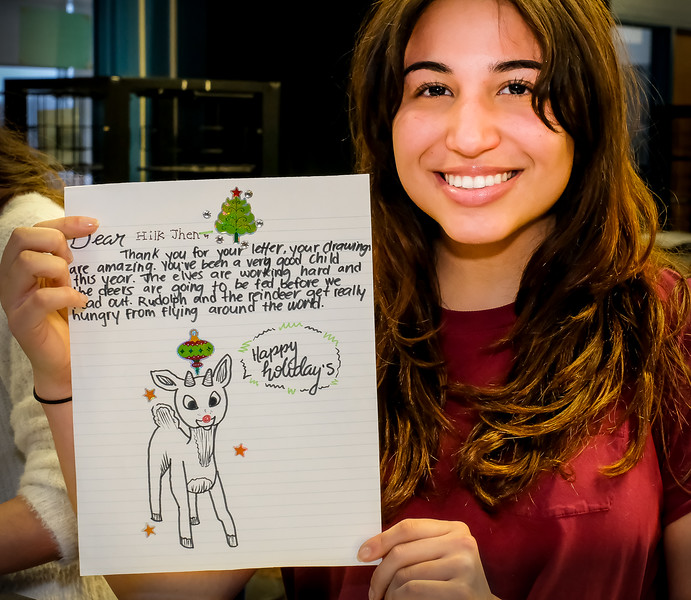 Dear Hilk Jhen
Thank you for your letter, your drawings
are amazing. You've been a very good child
this year. The elves are working hard and
the deers are going to be fed before we
head out. Rudolph and the reindeer get really
hungry from flying around the world.
Happy
holiday's